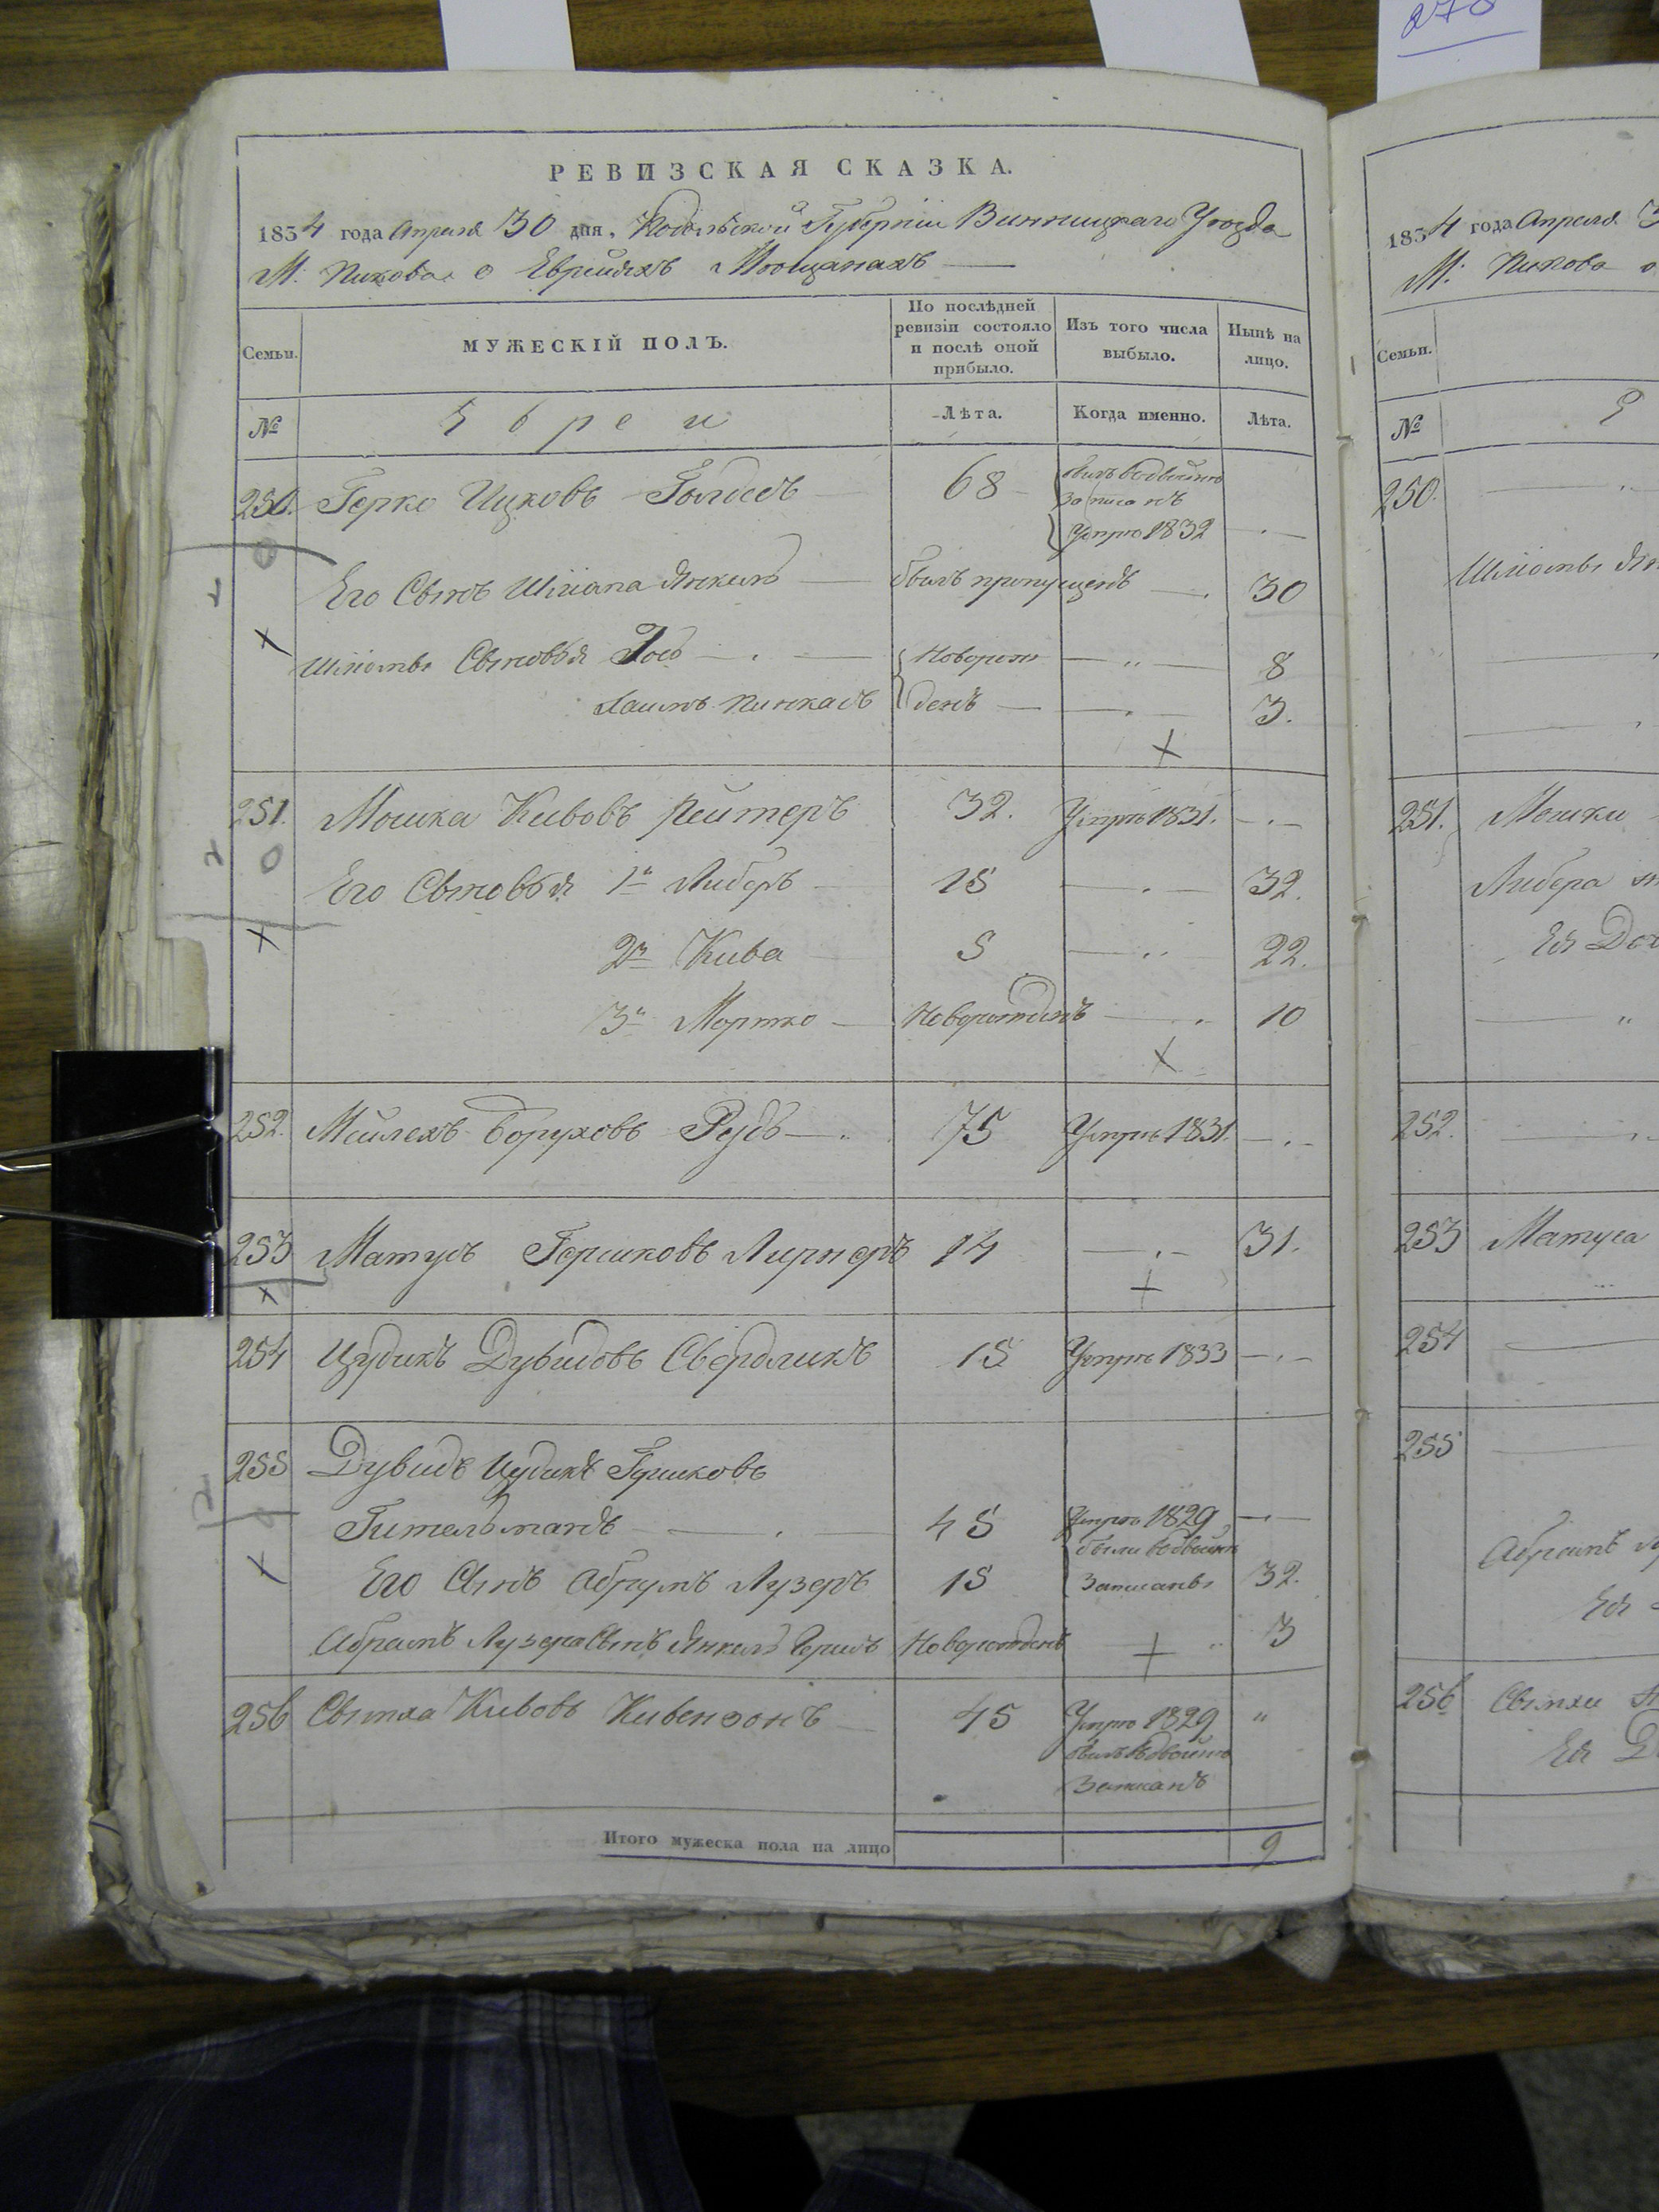 278
РЕВИЗСКАЯ СКАЗКА.
1834 года Апреля 30 дня, Подольской Губернiи Винницкаго Уѣзда
М: Пикова о Евреяхъ Мѣщанахъ
Семьи.
МУЖЕСКIЙ ПОЛЪ.
По послѣдней ревизiи состояло и послѣ оной прибыло.
Изъ того числа выбыло.
Нынѣ на лицо.
№
Евреи
Лѣта.
Когда именно.
Лѣта.
250. Герко Ицковъ 68 былъ вдвойнѣ
записанъ
Умре 1832
Его Сынъ Шлiома Янкель былъ пропущенъ 30
Шлiомы Сыновья Новорож 8
Хаимъ Пинкасъ денъ 3.
251. Мошка Кивовъ Рейтеръ 32. Умре 1831.
Его Сыновья 1й Либеръ 15 32.
2й Кива 5 22.
3й Мортко Новорожденъ 10
252. Мейлехъ Боруховъ Рудъ 75 Умре 1831.
253 Матусъ Гершковъ Лирнеръ 14 31.
254 Цудикъ Дувидовъ Свердликъ 15 Умре 1833
255 Дувидъ Цудикъ Гершковъ
Гительманъ 45 Умре 1829
были вдвойнѣ
Его Сынъ Абрумъ Лузеръ 15 записаны 32.
Абрамъ Лузера Сынъ Янкель Гершъ Новорожденъ 3
256 Кивовъ Кивензонъ 45 Умре 1829
былъ вдвойнѣ
Записанъ
Итого мужеска пола на лицо 9
1834 года Апреля 3
М: Пикова о
Семьи.
№ Е
250.
Шлiомы Ян
251. Мошки
Либера
Ея Доч
252.
253 Матуса
254
255
Абрамъ Лу
Ея
256
Ея Д